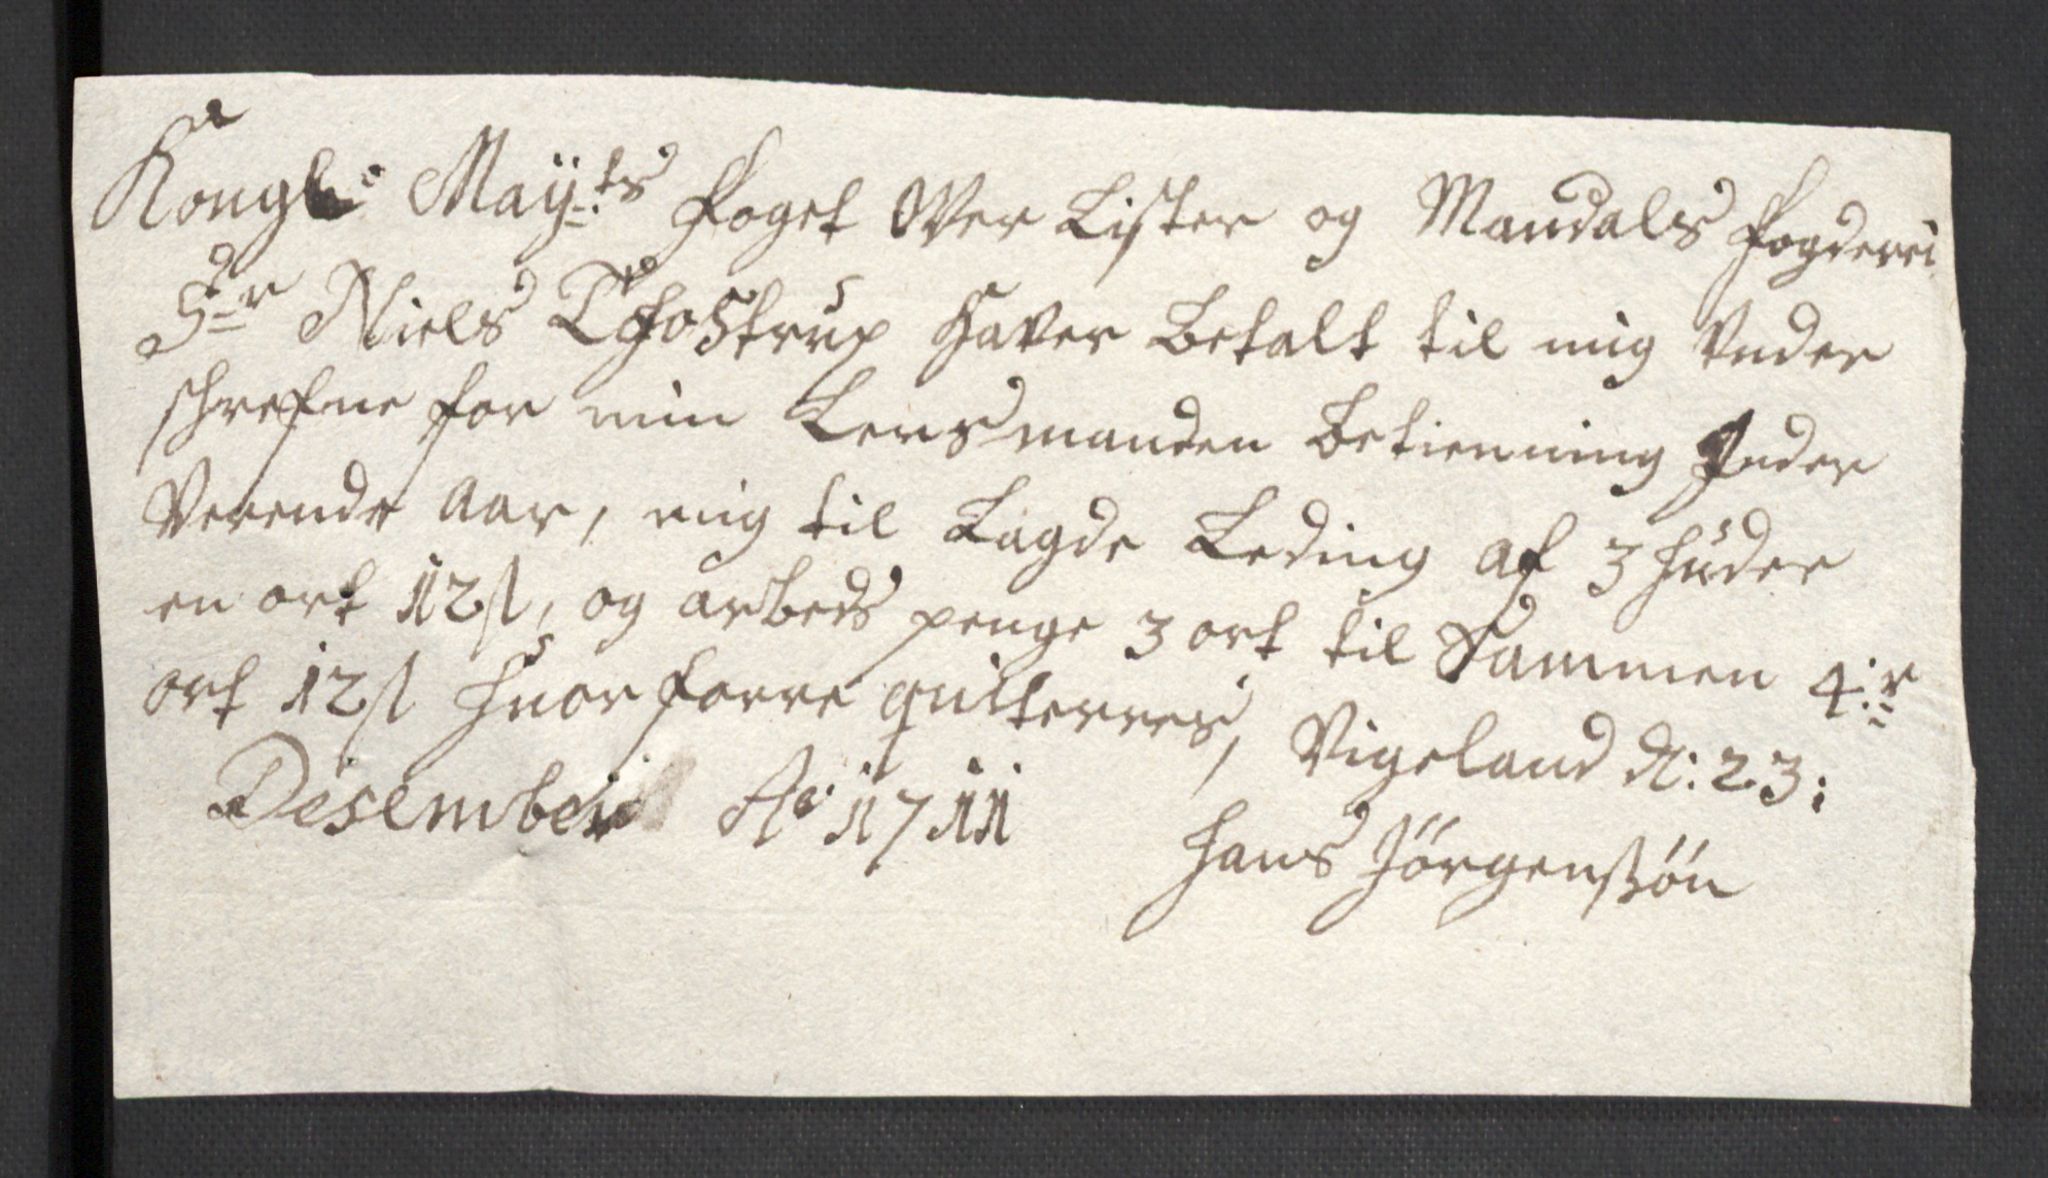 Kongl: Maÿ:ts foget Over Lister og Mandals fogderi
Sr Niels Thostrup haver betalt til mig Vnder
schrefne for min Lensmanden betienning Inder
Verende aar, mig til Lagde Leding af 3 huder
en ort 12 s, og arbeds penge 3 ort til Sammen 4:r
ort 12 s huorforre quiterres, Vigeland d: 23:
Desember Ao 1711
Hans Jörgenßön